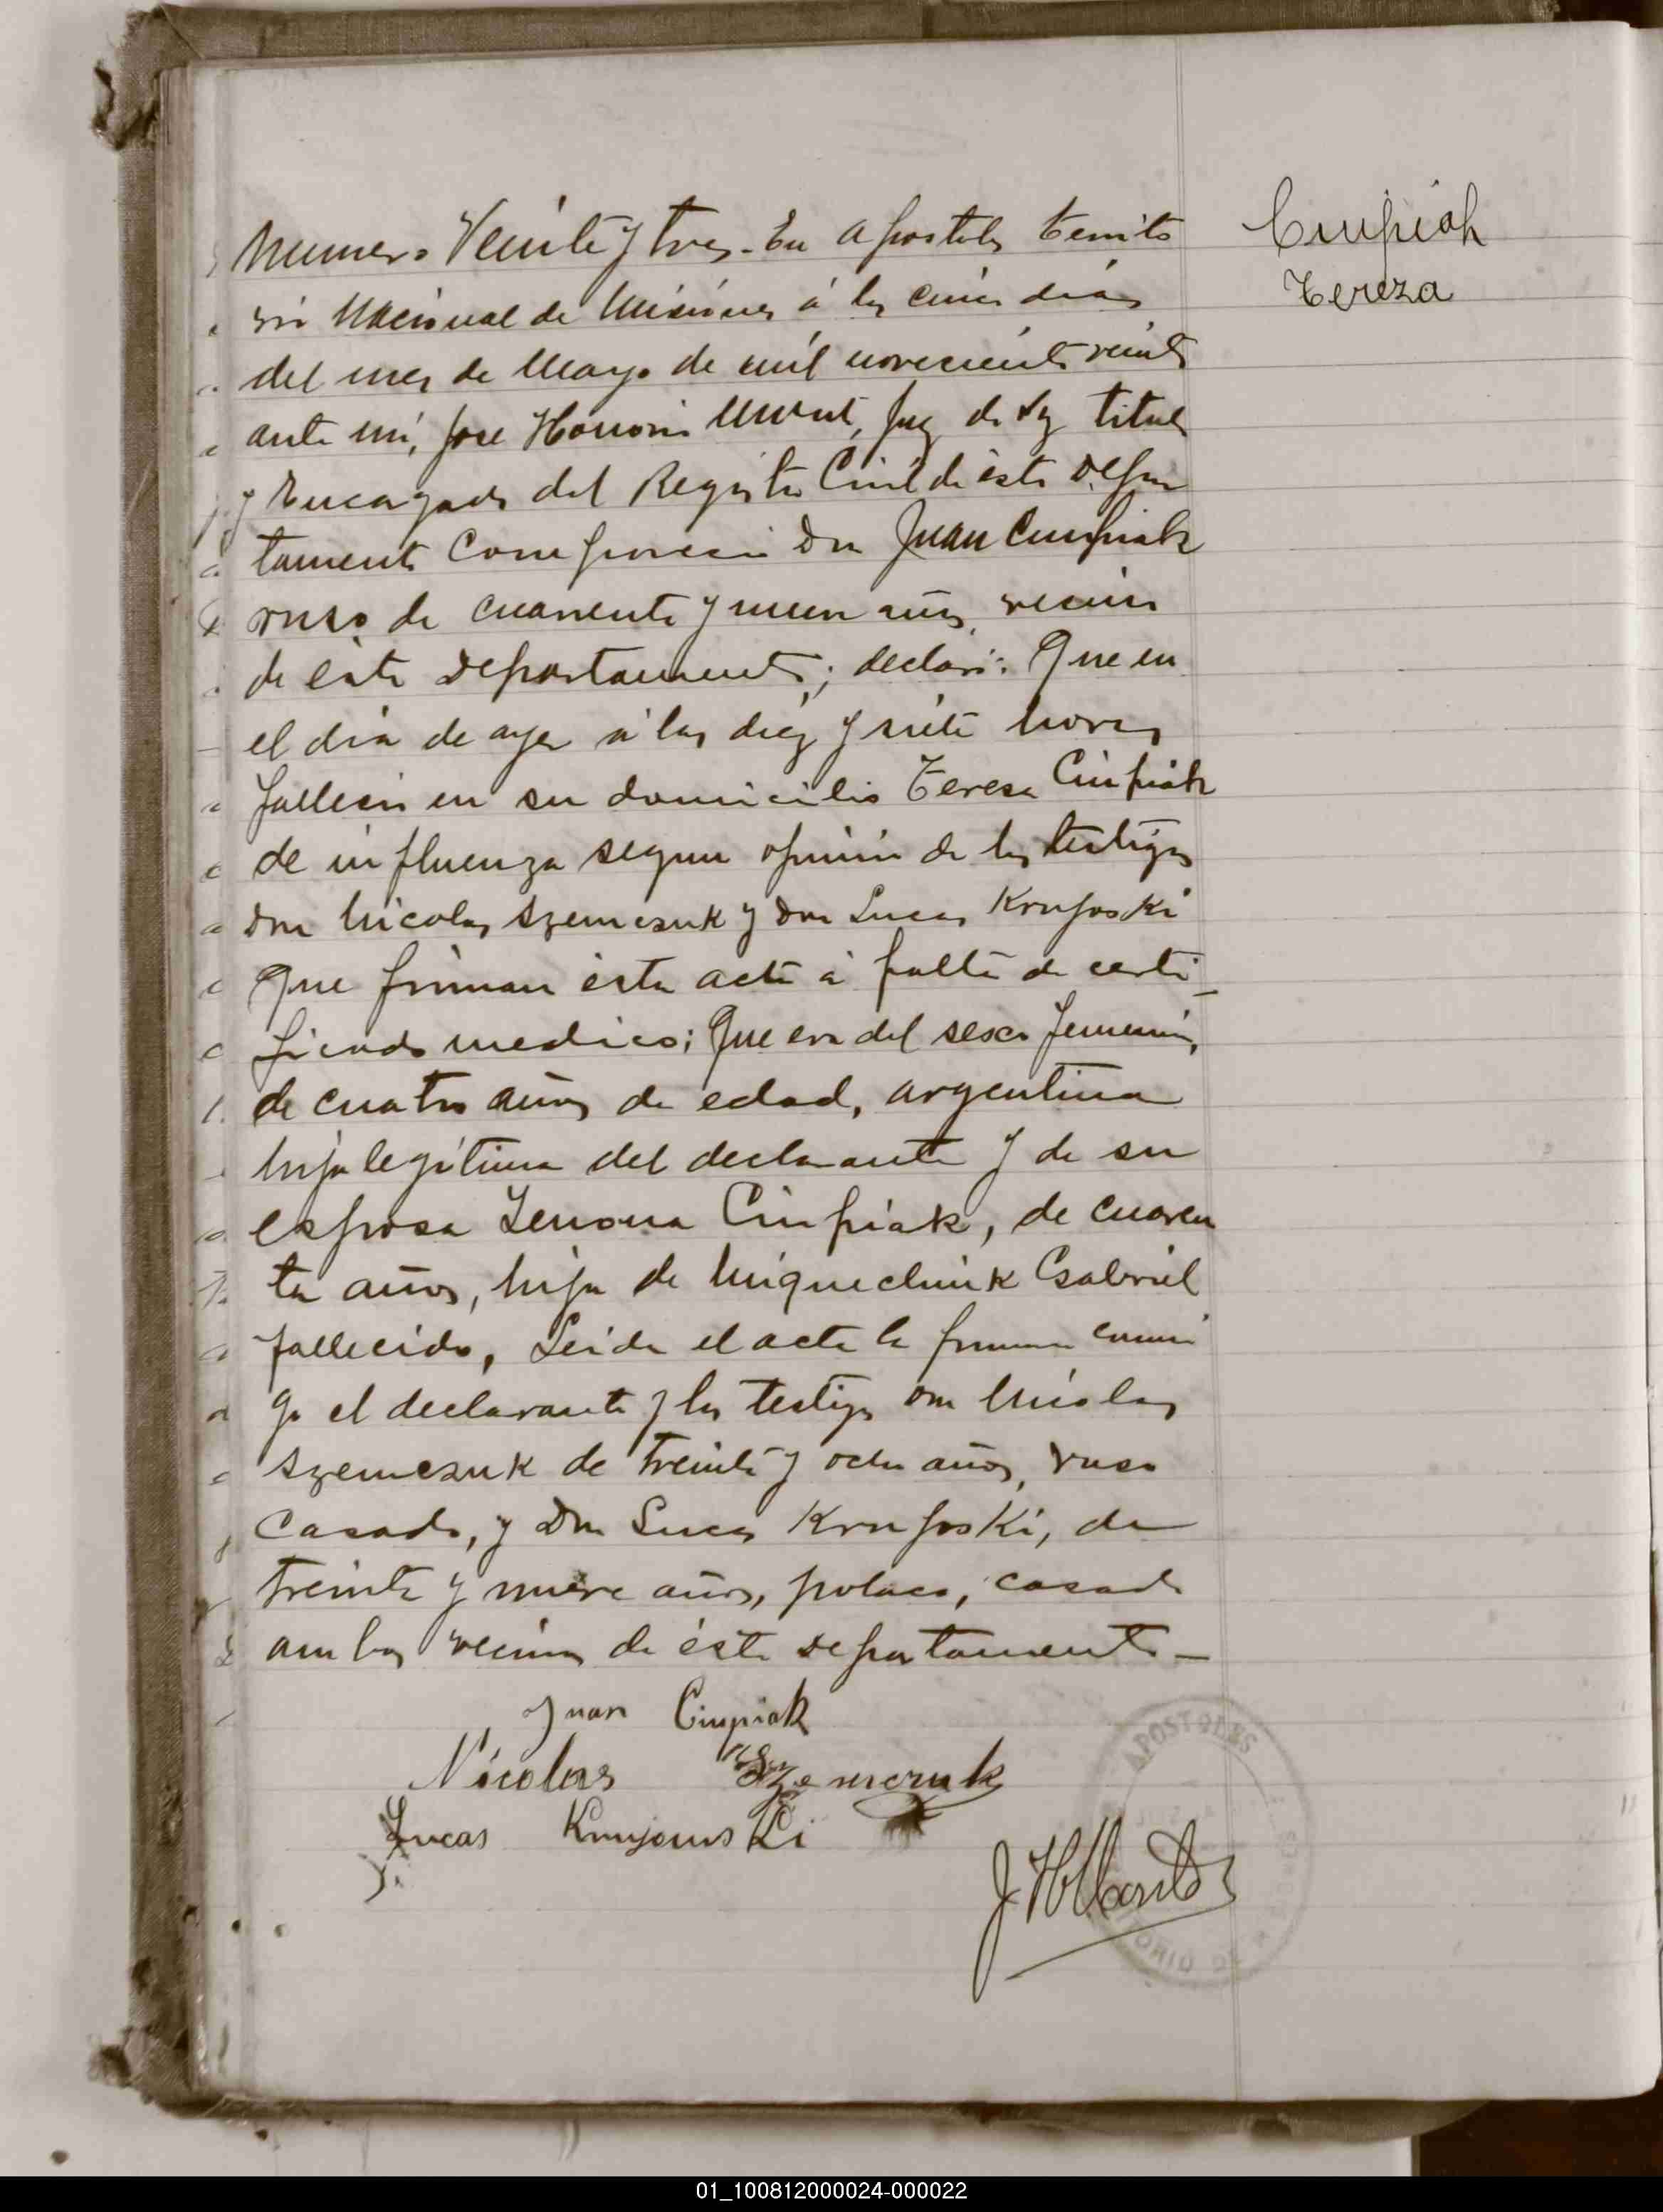 Numero Veinte y tres. En Apostoles territo
rio Nacional de Misiones á los cinco dias
del mes de Mayo de mil novecientos veinte
ante mi, Jose Honorio Juez de Paz titular
y Encargado del Registro Civil de éste Depar
tamento Comparecio Don Juan Ciupiak
ruso de cuarenta y nueve años, vecino
de éste Departamento; declaró: Que en
el dia de ayer á las diez y siete horas
fallecio en su domicilio Teresa Ciupiak
de influenza segun opinión de los testigos
Don Nicolas Szemczuk y Don Lucas Kruposki
Que firman ésta acta á falta de certi_
ficado medico; Que era del sexo femenino,
de cuatro años de edad, argentina
hija legítima del declarante y de su
esposa Zenona Ciupiak, de cuaren
ta años, hija de Gabriel
fallecido, Leida el acta la firman conmi
go el declarante y los testigos Don Nicolas
Szemczuk de treinta y ocho años, ruso
Casado, y Don Lucas Kruposki, de
treinta y nueve años, polaco, casado
ambos vecinos de éste Departamento_
Juan Ciupiak
Nicolas Szemczuk
Lucas
Ciupiak
Tereza
APOSTOLES
01_100812000024-000022